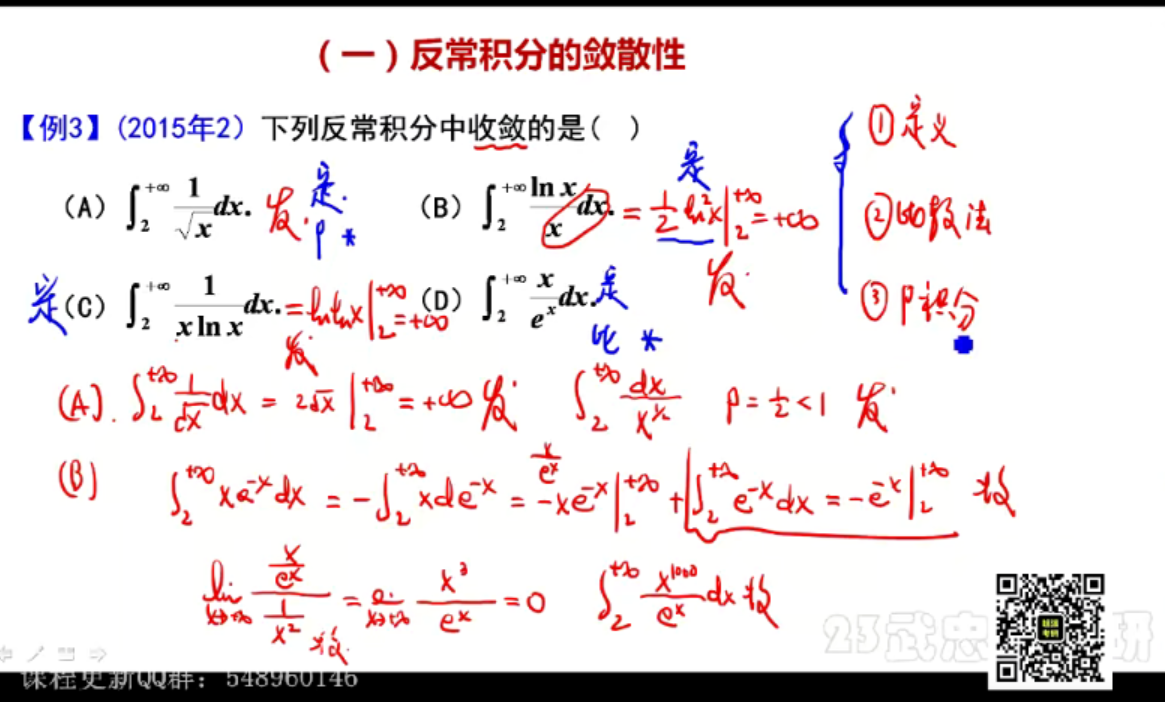 （一）反常积分的敛散性
【例3】(2015年2) 下列反常积分中收敛的是( )
① 定义
② 比较法
③ P积分
(A) ∫₂^{+∞} 1/√x dx. 发. 是. P *
(B) ∫₂^{+∞} ln x/x dx. = 1/2 ln²x |₂^{+∞} = +∞ 发 是
是 (C) ∫₂^{+∞} 1/(x ln x) dx. = ln ln x |₂^{+∞} = +∞ 发
(D) ∫₂^{+∞} x/e^x dx. 是 比 *
(A). ∫₂^{+∞} 1/√x dx = 2√x |₂^{+∞} = +∞ 发 ∫₂^{+∞} dx/x^{1/2} P = 1/2 < 1 发
(B) ∫₂^{+∞} x e^{-x} dx = -∫₂^{+∞} x d e^{-x} = -x e^{-x} |₂^{+∞} + ∫₂^{+∞} e^{-x} dx = -e^{-x} |₂^{+∞} 收
x/e^x
lim_{x→+∞} (x/e^x)/(1/x²) = lim_{x→+∞} x³/e^x = 0 ∫₂^{+∞} x^{1000}/e^x dx 收
收敛
23武忠
研
课程更新QQ群：548960146